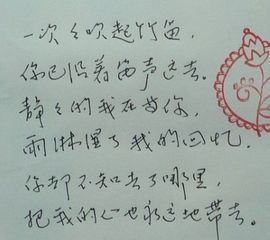 一次次吹起竹笛,
你已沿着笛声远去。
静静的我在等你,
雨淋湿了我的回忆,
你却不知去了哪里,
把我的心也永远地带去。